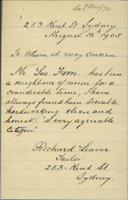 253 Kent St Sydney
August 14th 1905
To Whom it may concern
Mr. Gee Foon. has been
a neighbour of mine for a
considerable time, I have
always found him sociable
hardworking clean and
honest & very agreeable
Citizen
Richard Leaver
Tailor
253 Kent St
Sydney